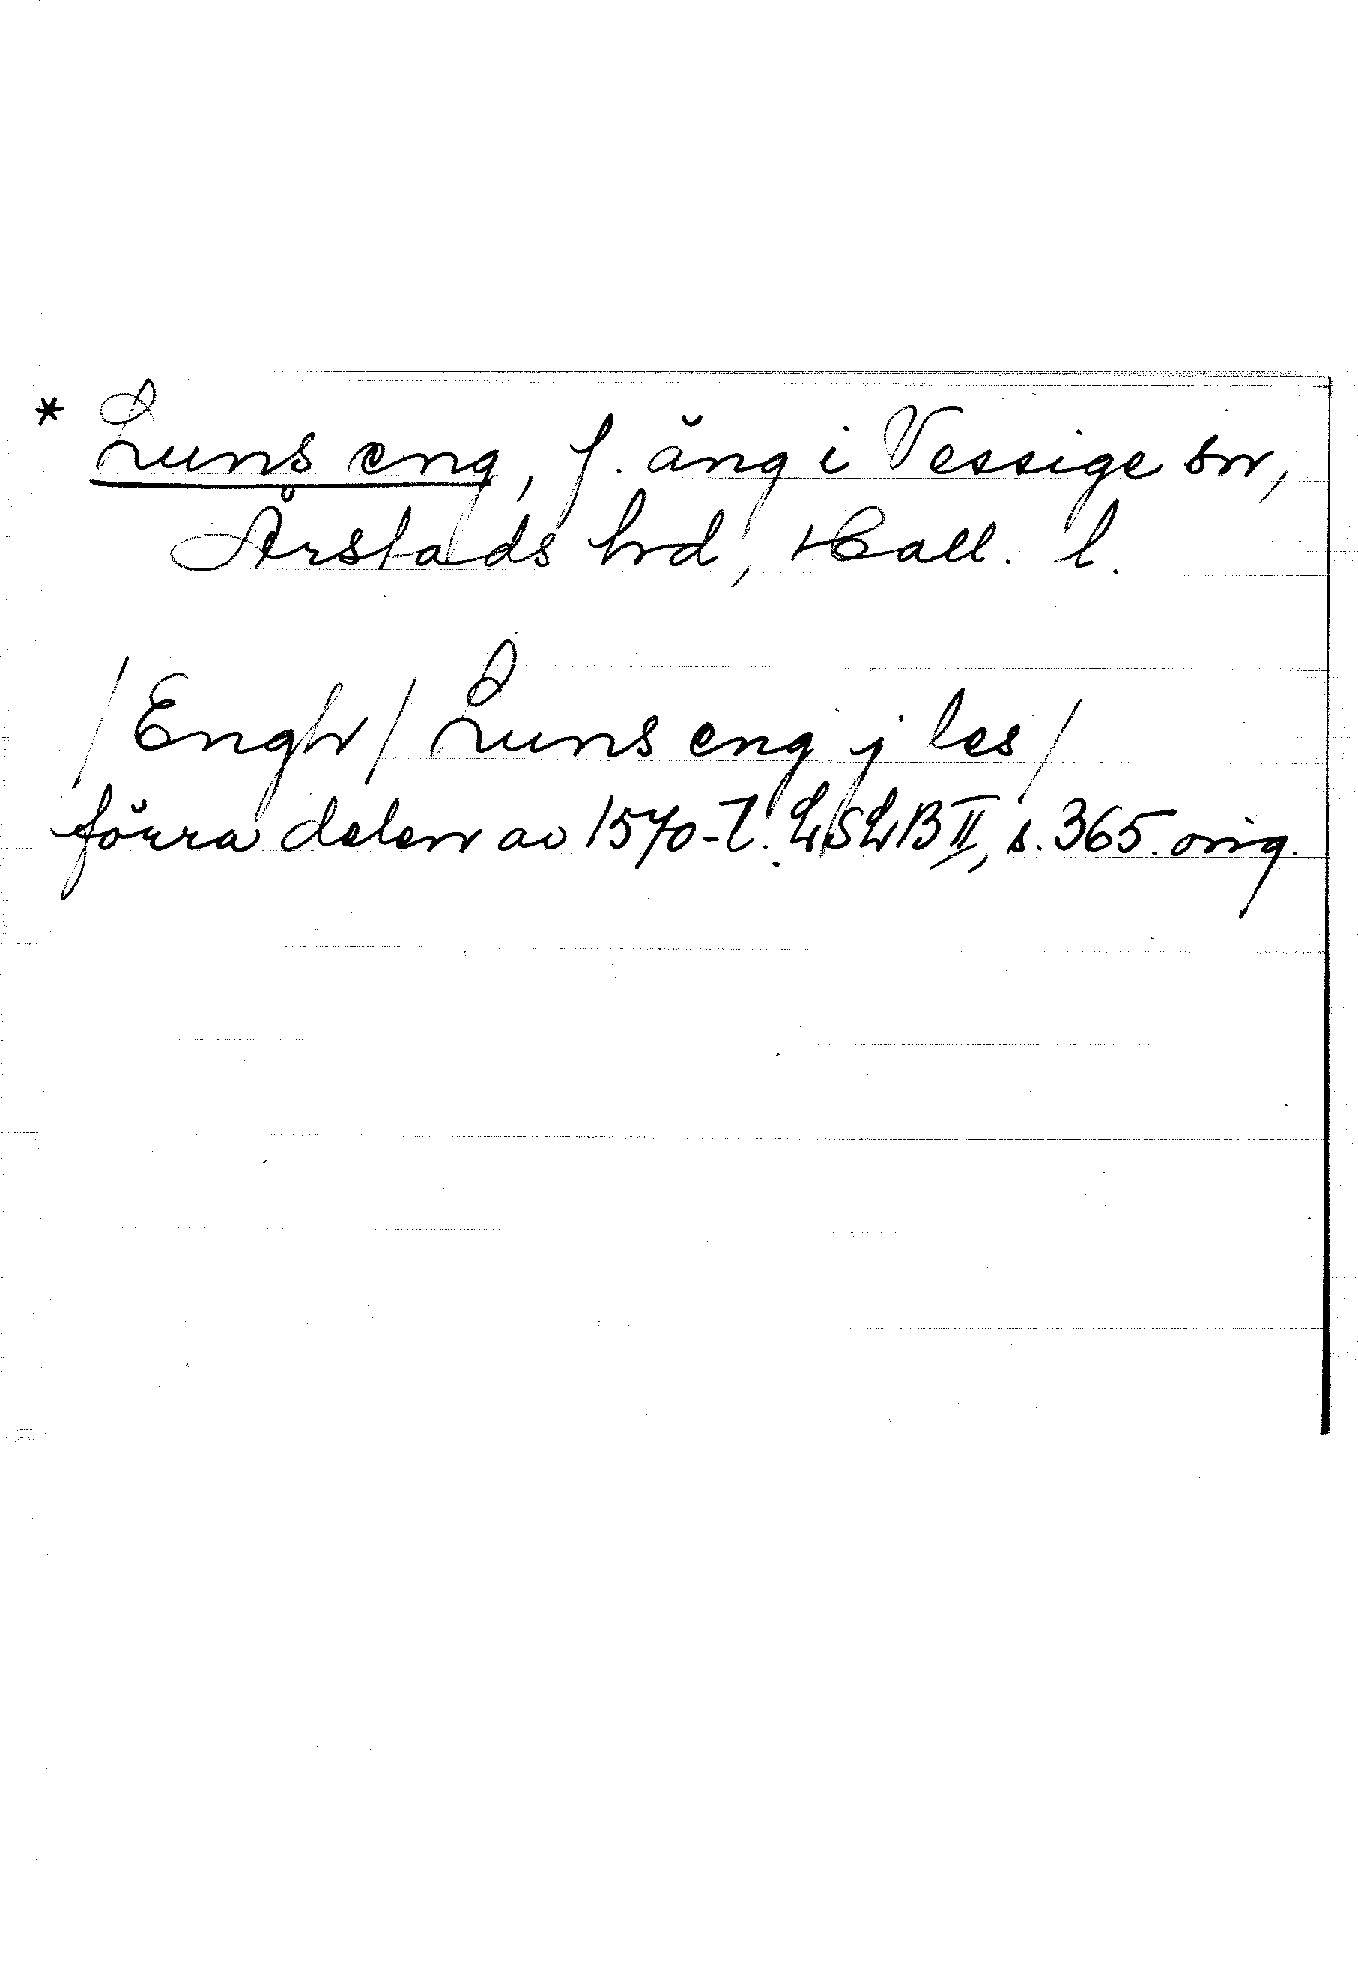 * Luns eng, f. äng i Vessige sn,
Årstads hrd, Hall. l.
/Engh/ Luns eng j les/
förra delen av 1570-t. LSLB II, s. 365. orig.